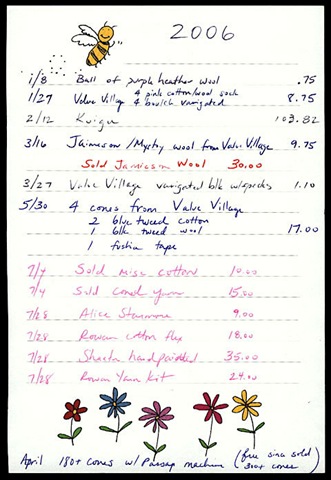 2006
1/8 Ball of purple heather wool .75
1/27 Value Village 4 pink cotton/wool sock
4 bluish varigated 8.75
2/12 Kuigu 103.82
3/16 Jaimeson/Mystry wool from Value Village 9.75
Sold Jamieson Wool 30.00
3/27 Value Village varigated blk w/specks 1.10
5/30 4 cones from Value Village
2 blue tweed cotton
1 blk tweed wool 17.00
1 fushia tape
7/4 Sold misc cotton 10.00
7/4 Sold coned yarn 15.00
7/28 Alice Starmore 9.00
7/28 Rowan cotton flex 18.00
7/28 Sheeta handpainted 35.00
7/28 Rowan Yarn Kit 24.00
April 180+ cones w/ Passap machine (free since sold
300+ cones)